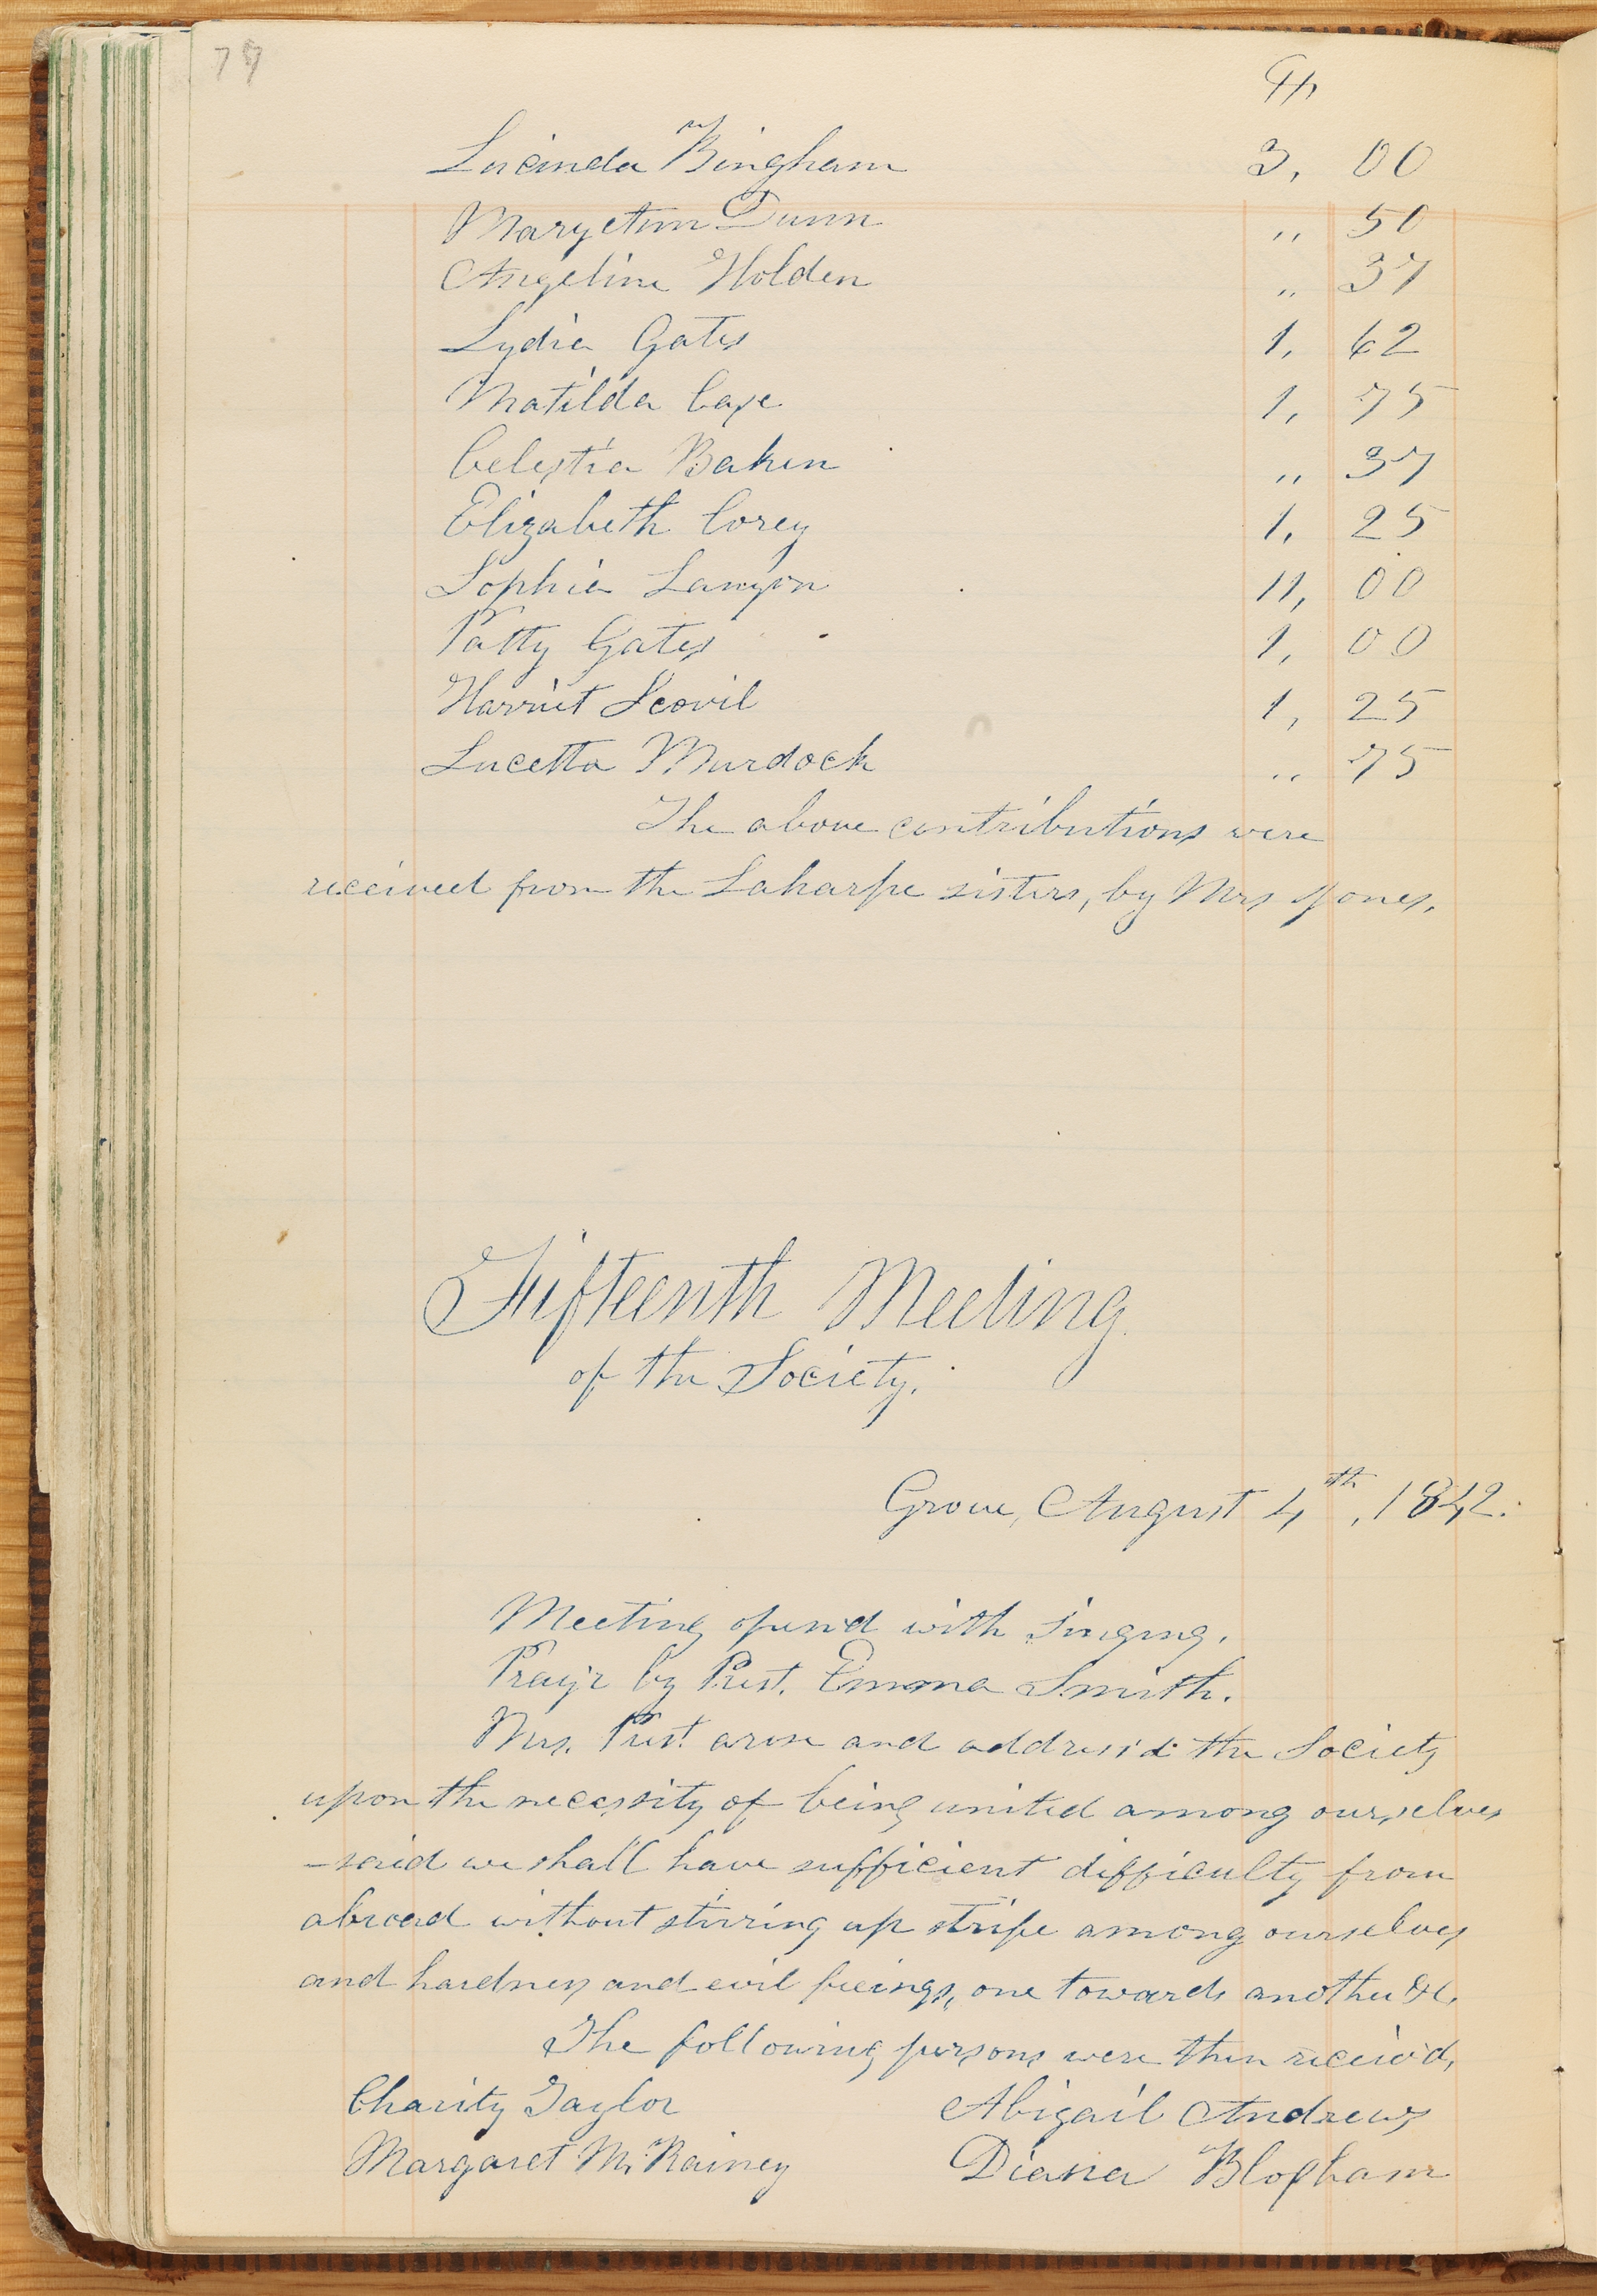 79
Lucinda Bingham 3, 00
Mary Ann Dunn ,, 50
Angeline Holden ,, 37
Lydia Gates 1, 62
Matilda Case 1, 75
Celestia Baken ,, 37
Elizabeth Corey 1, 25
Sophia Lanyon 11, 00
Patty Gates 1, 00
Harriet Scovil 1, 25
Lucetta Murdock ,, 75
The above contributions were
received from the Laharpe sisters, by Mrs Jones.
Fifteenth Meeting
of the Society.
Grove, August 4th, 1842.
Meeting open'd with singing.
Pray'r by Prest. Emma Smith.
Mrs. Prest. arose and address'd the Society
upon the necessity of being united among ourselves
- said we shall have sufficient difficulty from
abroad without stirring up strife among ourselves
and hardness and evil feeings, one towards another &c.
The following persons were then receiv'd,
Charity Taylor Abigail Andrews
Margaret Mc.Rainey Diana Blopham